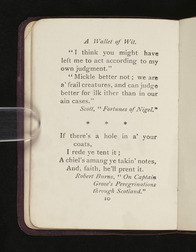 A Wallet of Wit.
"I think you might have
left me to act according to my
own judgment."
"Mickle better not; we are
a' frail creatures, and can judge
better for ilk ither than in our
ain cases."
Scott, "Fortunes of Nigel."
* * *
If there's a hole in a' your
coats,
I rede ye tent it;
A chiel's amang ye takin' notes,
And, faith, he'll prent it.
Robert Burns, "On Captain
Grose's Peregrinations
through Scotland."
10